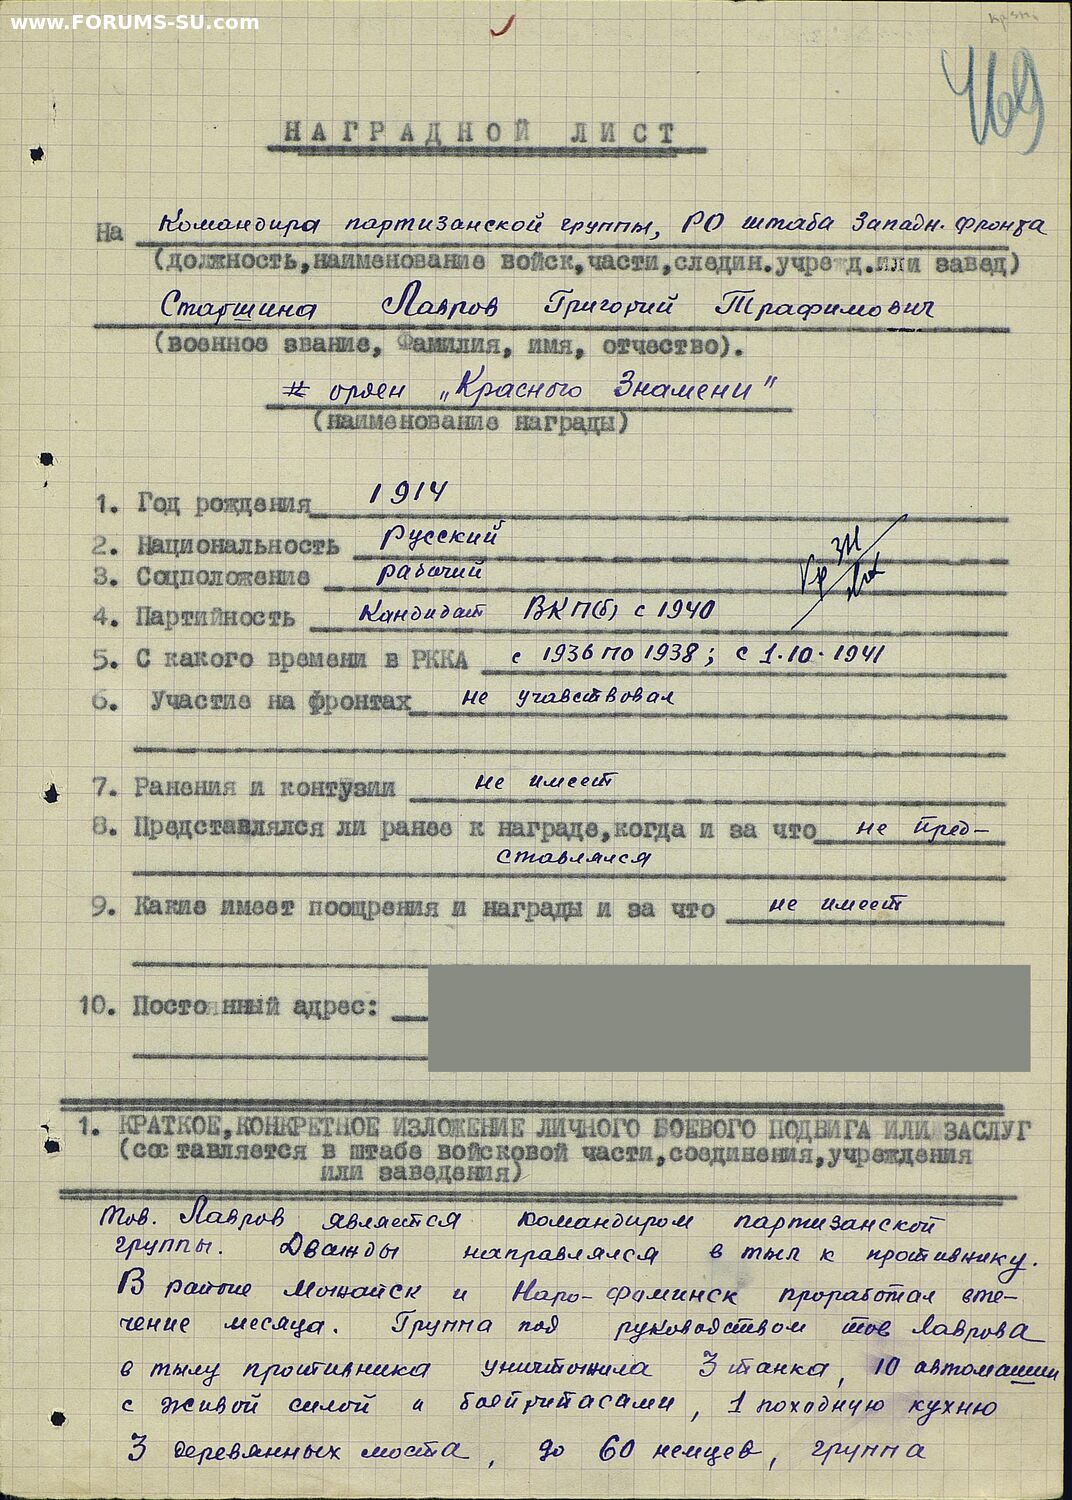 www.FORUMS-SU.com
469
НАГРАДНОЙ ЛИСТ
На Командира партизанской группы, РО штаба Западн. Фронта
(должность,наименование войск,части,следин.учрежд.или завед)
Старшина Лавров Григорий Трафимович
(военное звание, Фамилия, имя, отчество).
орден „Красного Знамени"
(наименование награды)
1. Год рождения 1914
2. Национальность Русский
3. Соцположение рабочий
4. Партийность Кандидат ВКП(б) с 1940
5. С какого времени в РККА с 1936 по 1938; с 1.10.1941
6. Участие на фронтах не учавствовал
7. Ранения и контузии не имеет
8. Представлялся ли ранее к награде,когда и за что не пред-
ставлялся
9. Какие имеет поощрения и награды и за что не имеет
10. Постоянный адрес:
1. КРАТКОЕ,КОНКРЕТНОЕ ИЗЛОЖЕНИЕ ЛИЧНОГО БОЕВОГО ПОДВИГА ИЛИ ЗАСЛУГ
(составляется в штабе войсковой части,соединения,учреждения
или заведения)
Тов. Лавров является командиром партизанской
группы. Дважды направлялся в тыл к противнику.
В районе Можайск и Наро-Фоминск проработал вте-
чение месяца. Группа под руководством тов Лаврова
в тылу противника уничтожила 3 танка, 10 автомашин
с живой силой и боеприпасами, 1 походную кухню
3 деревянных моста, до 60 немцев, группа